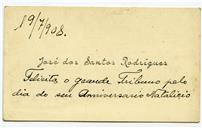 19/7/908.
José dos Santos Rodrigues
Felicita o grande Tribuno pelo
dia do seu Anniversario Natalicio